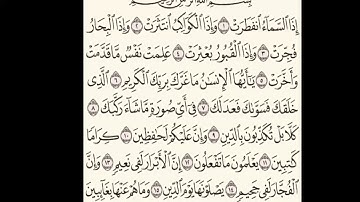 بِسْمِ ٱللَّهِ ٱلرَّحْمَٰنِ ٱلرَّحِيمِ
إِذَا ٱلسَّمَآءُ ٱنفَطَرَتْ ١ وَإِذَا ٱلْكَوَاكِبُ ٱنتَثَرَتْ ٢ وَإِذَا ٱلْبِحَارُ
فُجِّرَتْ ٣ وَإِذَا ٱلْقُبُورُ بُعْثِرَتْ ٤ عَلِمَتْ نَفْسٌ مَّا قَدَّمَتْ
وَأَخَّرَتْ ٥ يَٰٓأَيُّهَا ٱلْإِنسَٰنُ مَا غَرَّكَ بِرَبِّكَ ٱلْكَرِيمِ ٦ ٱلَّذِى
خَلَقَكَ فَسَوَّىٰكَ فَعَدَلَكَ ٧ فِىٓ أَىِّ صُورَةٍ مَّا شَآءَ رَكَّبَكَ ٨
كَلَّا بَلْ تُكَذِّبُونَ بِٱلدِّينِ ٩ وَإِنَّ عَلَيْكُمْ لَحَٰفِظِينَ ١٠ كِرَامًا
كَٰتِبِينَ ١١ يَعْلَمُونَ مَا تَفْعَلُونَ ١٢ إِنَّ ٱلْأَبْرَارَ لَفِى نَعِيمٍ ١٣ وَإِنَّ
ٱلْفُجَّارَ لَفِى جَحِيمٍ ١٤ يَصْلَوْنَهَا يَوْمَ ٱلدِّينِ ١٥ وَمَا هُمْ عَنْهَا بِغَآئِبِينَ